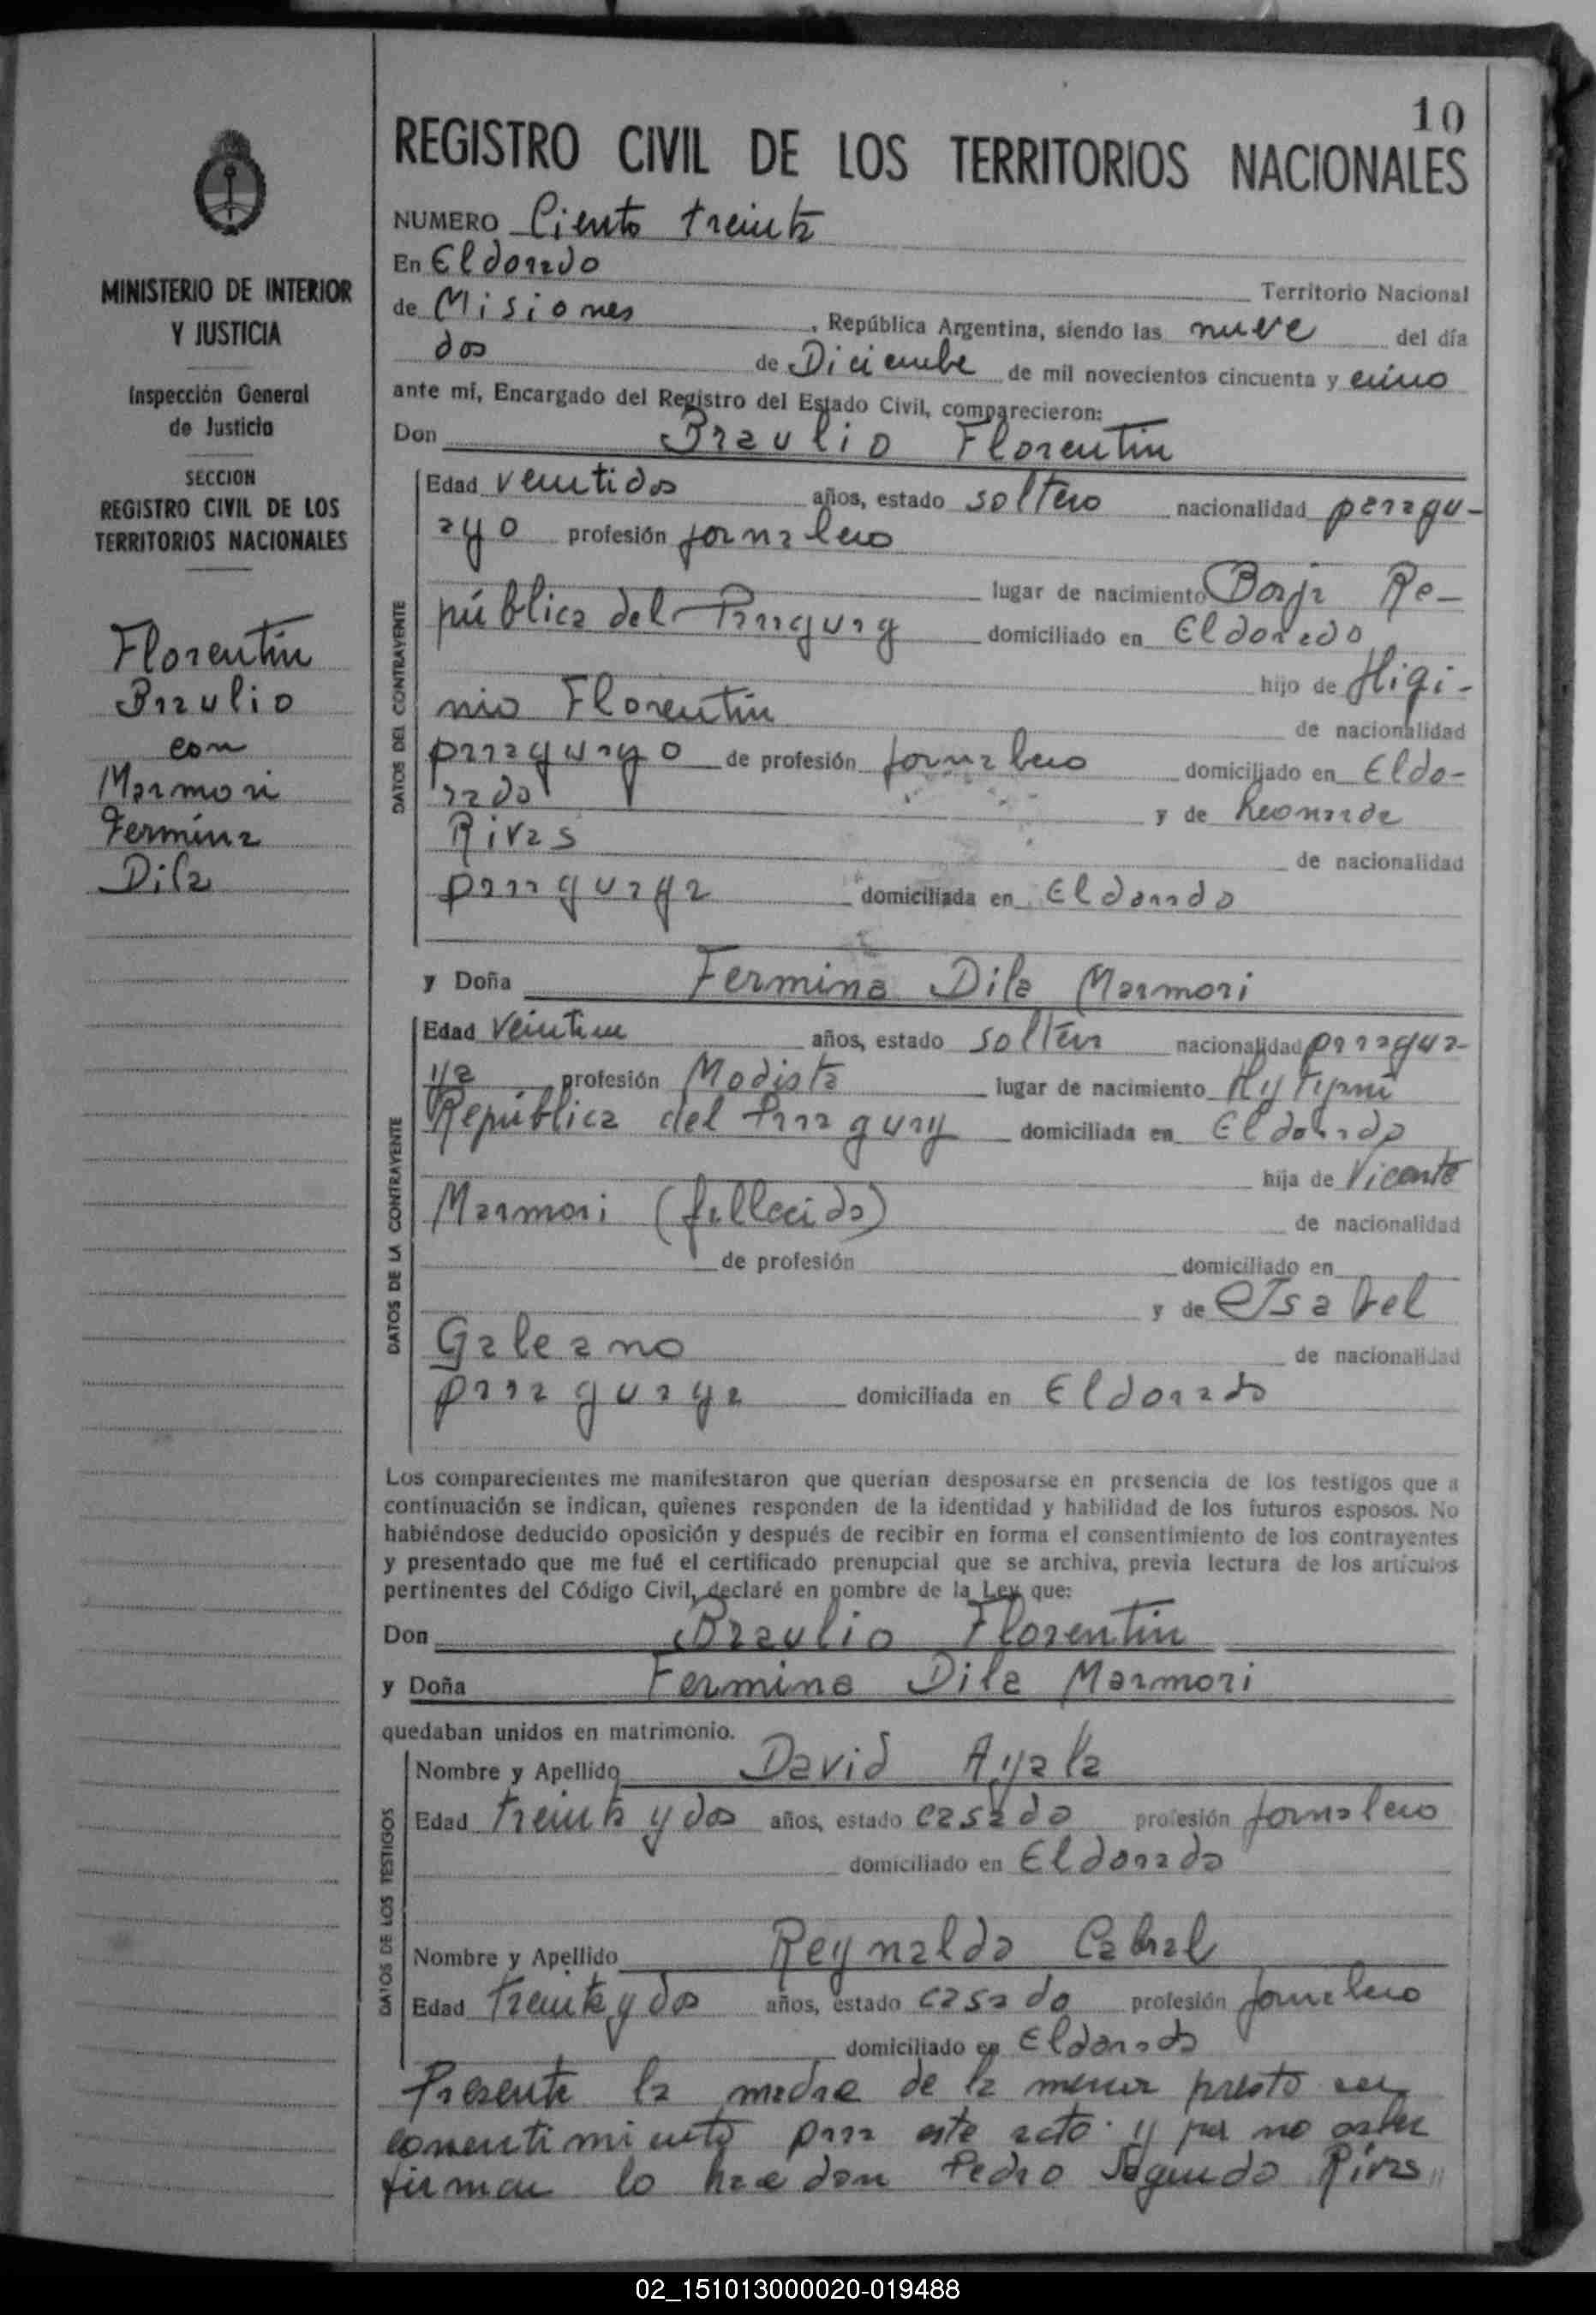 10
REGISTRO CIVIL DE LOS TERRITORIOS NACIONALES
MINISTERIO DE INTERIOR
Y JUSTICIA
Inspección General
de Justicia
SECCION
REGISTRO CIVIL DE LOS
TERRITORIOS NACIONALES
Florentin
Braulio
con
Marmori
Fermina
Dila
NUMERO Ciento treinta
En Eldorado
Territorio Nacional
de Misiones, República Argentina, siendo las nueve del día
dos de Diciembre de mil novecientos cincuenta y cinco
ante mí, Encargado del Registro del Estado Civil, comparecieron:
Don Braulio Florentin
DATOS DEL CONTRAYENTE
Edad veintidos años, estado soltero nacionalidad paragu-
ayo profesión jornalero
lugar de nacimiento Borja Re-
pública del Paraguay domiciliado en Eldorado
hijo de Higi-
nio Florentin
de nacionalidad
paraguayo de profesión jornalero domiciliado en Eldo-
rado
y de Leonarda
Rivas
de nacionalidad
paraguaya domiciliada en Eldorado
y Doña Fermina Dila Marmori
DATOS DE LA CONTRAYENTE
Edad veintiun años, estado soltera nacionalidad paragua-
ya profesión Modista lugar de nacimiento
República del Paraguay domiciliada en Eldorado
hija de Vicente
Marmori (fallecido)
de nacionalidad
de profesión domiciliado en
y de Isabel
Galeano
de nacionalidad
paraguaya domiciliada en Eldorado
Los comparecientes me manifestaron que querían desposarse en presencia de los testigos que a
continuación se indican, quienes responden de la identidad y habilidad de los futuros esposos. No
habiéndose deducido oposición y después de recibir en forma el consentimiento de los contrayentes
y presentado que me fué el certificado prenupcial que se archiva, previa lectura de los artículos
pertinentes del Código Civil, declaré en nombre de la Ley que:
Don Braulio Florentin
y Doña Fermina Dila Marmori
quedaban unidos en matrimonio.
DATOS DE LOS TESTIGOS
Nombre y Apellido David Ayala
Edad treinta y dos años, estado casado profesión jornalero
domiciliado en Eldorado
Nombre y Apellido Reynaldo Cabral
Edad treinta y dos años, estado casado profesión jornalero
domiciliado en Eldorado
Presente la madre de la menor presto su
consentimiento para este acto y por no saber
firmar lo hace don Pedro Segundo Rivas
02_151013000020-019488